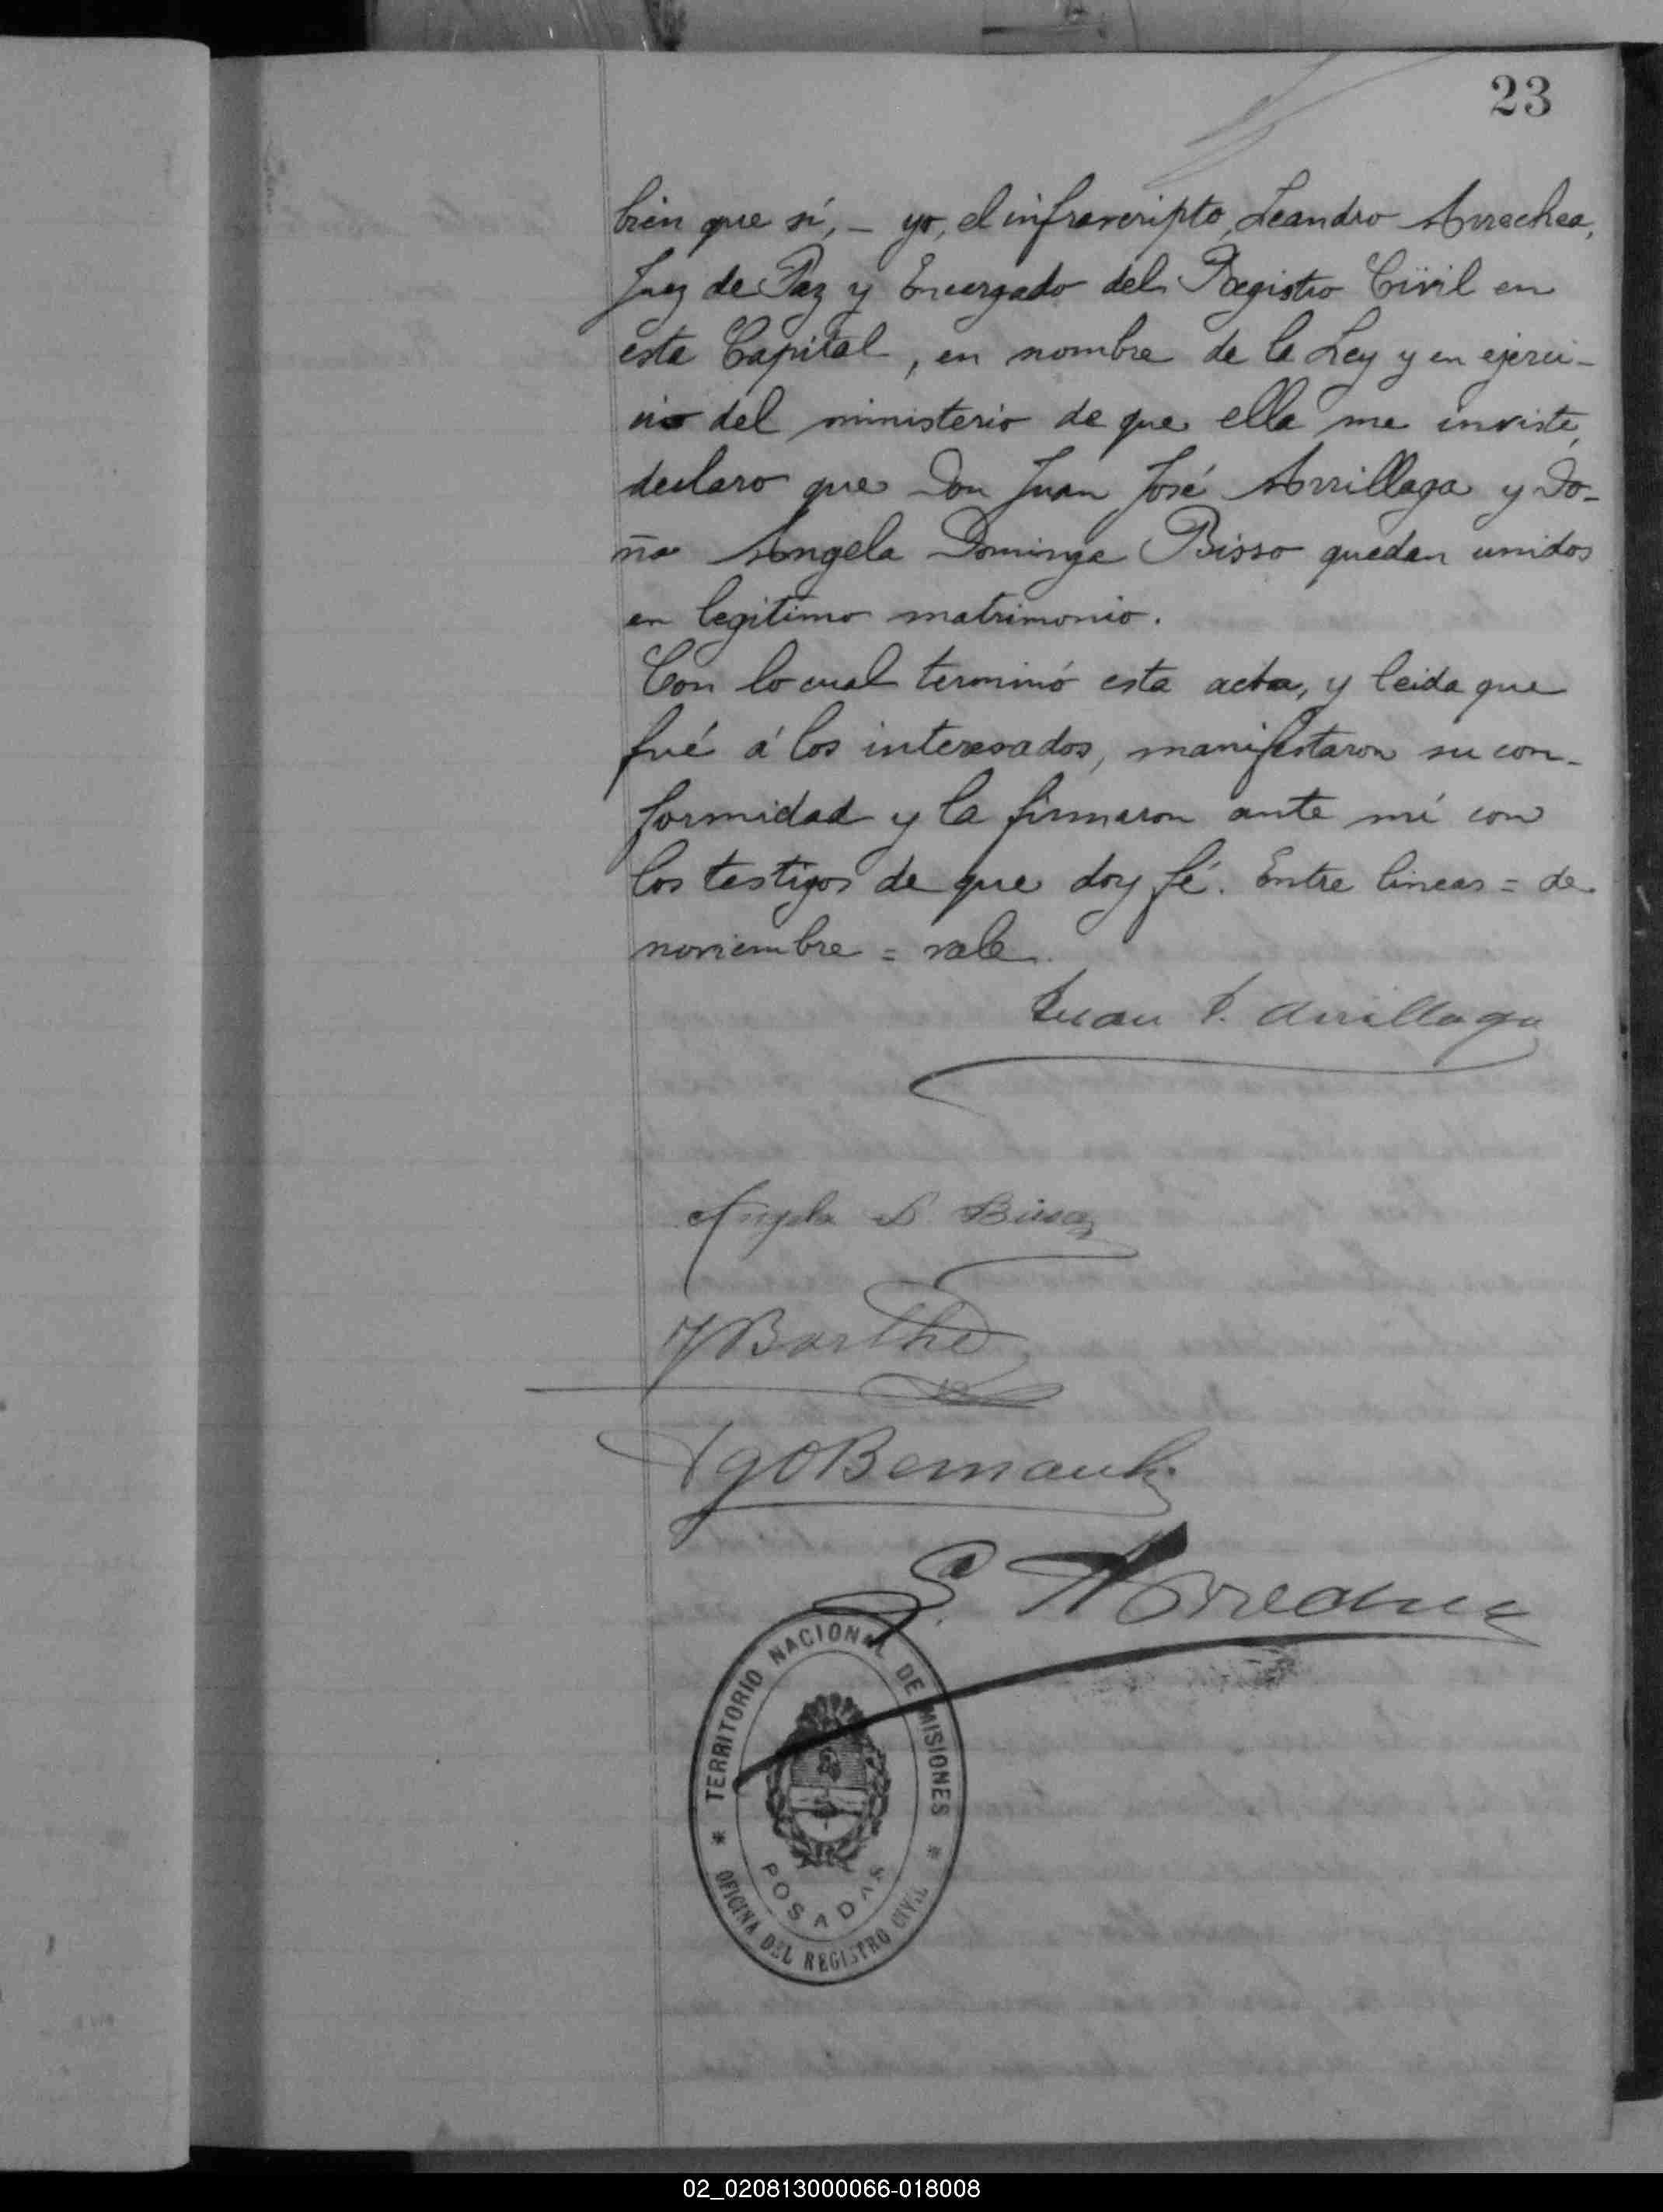 23
bien que sí, - yo, el infrascripto, Leandro Arrechea,
Juez de Paz y Encargado del Registro Civil en
esta Capital, en nombre de la Ley y en ejerci-
cio del ministerio de que ella me inviste,
declaro que Don Juan José Arrillaga y Do-
ña Angela Dominga Bisso quedan unidos
en legitimo matrimonio.
Con lo cual terminó esta acta, y leida que
fué á los interesados, manifestaron su con-
formidad y la firmaron ante mí con
los testigos de que doy fé. Entre lineas = de
noviembre = vale.
Juan J. Arrillaga
Angela D. Bisso
Barthe
L. Arrechea
TERRITORIO NACIONAL DE MISIONES
POSADAS
OFICINA DEL REGISTRO CIVIL
02_020813000066-018008